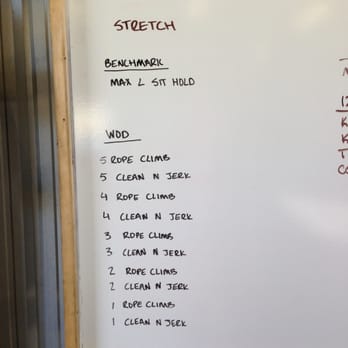 STRETCH
BENCHMARK
MAX L SIT HOLD
WOD
5 ROPE CLIMB
5 CLEAN N JERK
4 ROPE CLIMB
4 CLEAN N JERK
3 ROPE CLIMB
3 CLEAN N JERK
2 ROPE CLIMB
2 CLEAN N JERK
1 ROPE CLIMB
1 CLEAN N JERK